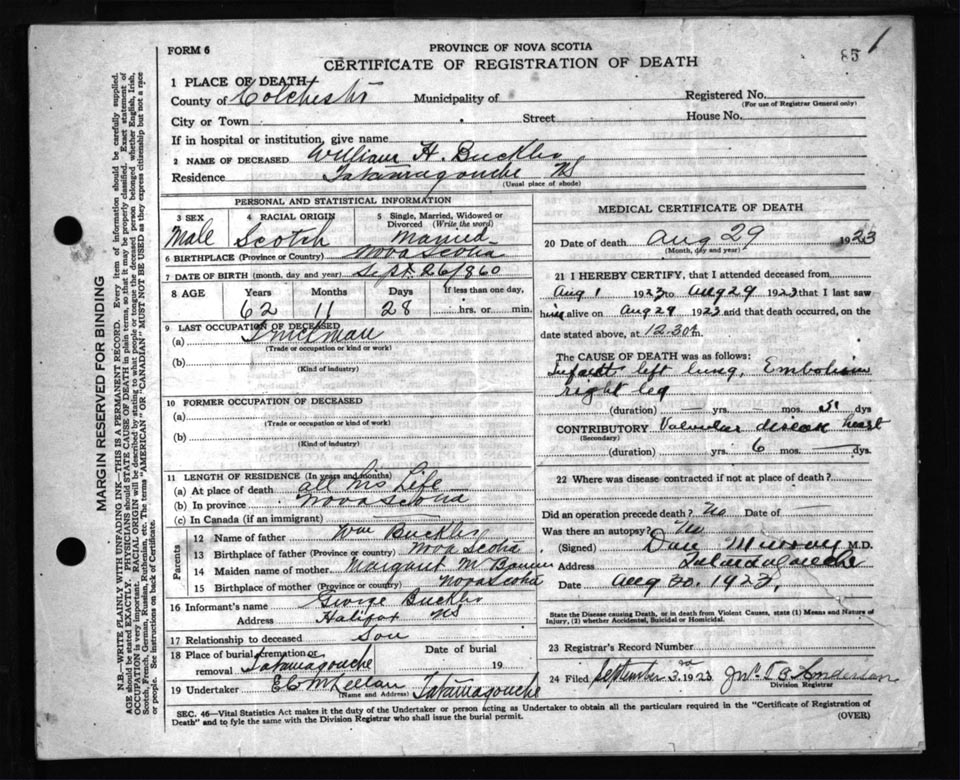 FORM 6
PROVINCE OF NOVA SCOTIA
CERTIFICATE OF REGISTRATION OF DEATH
85 1
1 PLACE OF DEATH
County of Colchester Municipality of Registered No.
(For use of Registrar General only)
City or Town Street House No.
If in hospital or institution, give name
2 NAME OF DECEASED William H. Buckler
Residence Tatamagouche NS
(Usual place of abode)
PERSONAL AND STATISTICAL INFORMATION
3 SEX 4 RACIAL ORIGIN 5 Single, Married, Widowed or Divorced (Write the word)
Male Scotch Married
6 BIRTHPLACE (Province or Country) Nova Scotia
7 DATE OF BIRTH (month, day and year) Sept. 26/860
8 AGE Years Months Days If less than one day,
62 11 28 hrs. or min.
9 LAST OCCUPATION OF DECEASED
(a)
(Trade or occupation or kind of work)
(b)
(Kind of industry)
10 FORMER OCCUPATION OF DECEASED
(a)
(Trade or occupation or kind of work)
(b)
(Kind of industry)
11 LENGTH OF RESIDENCE (In years and months)
(a) At place of death all his Life
(b) In province Nova Scotia
(c) In Canada (if an immigrant)
Parents
12 Name of father Wm Buckler
13 Birthplace of father (Province or country) Nova Scotia
14 Maiden name of mother Margaret
15 Birthplace of mother (Province or country) Nova Scotia
16 Informant's name George Buckler
Address Halifax NS
17 Relationship to deceased Son
18 Place of burial, cremation or removal Tatamagouche Date of burial 19
19 Undertaker E C McLellan Tatamagouche
(Name and Address)
MEDICAL CERTIFICATE OF DEATH
20 Date of death Aug 29 1923
(Month, day and year)
21 I HEREBY CERTIFY, that I attended deceased from
Aug 1 1923 to Aug 29 1923 that I last saw
him alive on Aug 29 1923 and that death occurred, on the
date stated above, at 12.30 m.
The CAUSE OF DEATH was as follows:
Infarct left lung, Embolism
right leg
(duration) — yrs. — mos. 31 dys
CONTRIBUTORY Valvular disease heart
(Secondary)
(duration) 6 mos. — dys.
22 Where was disease contracted if not at place of death?
Did an operation precede death? No Date of —
Was there an autopsy? No
(Signed) Dan Murray M.D.
Address Tatamagouche
Date Aug 30. 1923,
State the Disease causing Death, or in death from Violent Causes, state (1) Means and Nature of
Injury, (2) whether Accidental, Suicidal or Homicidal.
23 Registrar's Record Number
24 Filed September 3rd 1923 Anderson
Division Registrar
SEC. 46—Vital Statistics Act makes it the duty of the Undertaker or person acting as Undertaker to obtain all the particulars required in the "Certificate of Registration of
Death" and to fyle the same with the Division Registrar who shall issue the burial permit. (OVER)
MARGIN RESERVED FOR BINDING
N.B.—WRITE PLAINLY WITH UNFADING INK—THIS IS A PERMANENT RECORD. Every item of information should be carefully supplied.
AGE should be stated EXACTLY. PHYSICIANS should STATE CAUSE OF DEATH in plain terms, so that it may be properly classified. Exact statement of
OCCUPATION is very important. RACIAL ORIGIN will be described by stating to what people or tongue the deceased person belonged whether English, Irish,
Scotch, French, German, Russian, Ruthenian, etc. The terms "AMERICAN" OR "CANADIAN" MUST NOT BE USED as they express citizenship but not a race
or people. See instructions on back of Certificate.